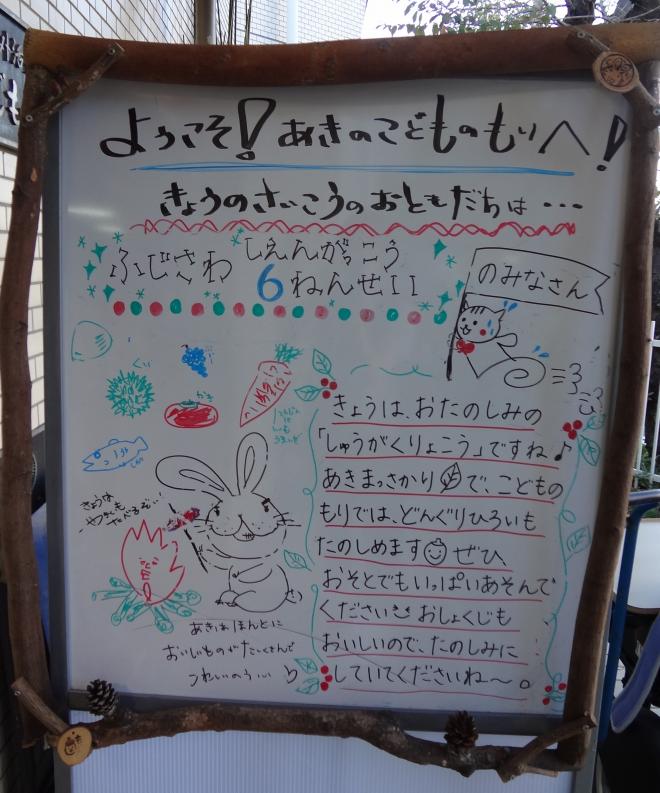 ようこそ！あきのこどものもりへ！
きょうのさいこうのおともだちは…
ふじさわ しえんがっこう
6ねんせい
のみなさん
くり
かき
きょうは、おたのしみの
「しゅうがくりょこう」ですね♪
あきまっさかりで、こどもの
もりでは、どんぐりひろいも
たのしめます ぜひ
おそとでもいっぱいあそんで
ください おしょくじも
おいしいので、たのしみに
していてくださいね〜。
きょうは
あきはほんとに
おいしいものがたくさんで
うれしいのぅ